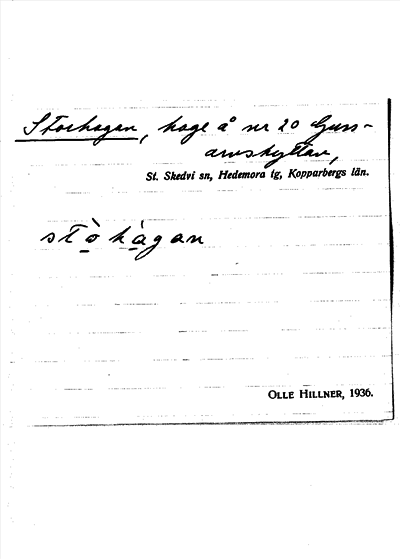 Storhagan, hage å nr 20 Guss-
arvshyttan,
St. Skedvi sn, Hedemora tg, Kopparbergs län.
stò̱hà̱gan
OLLE HILLNER, 1936.